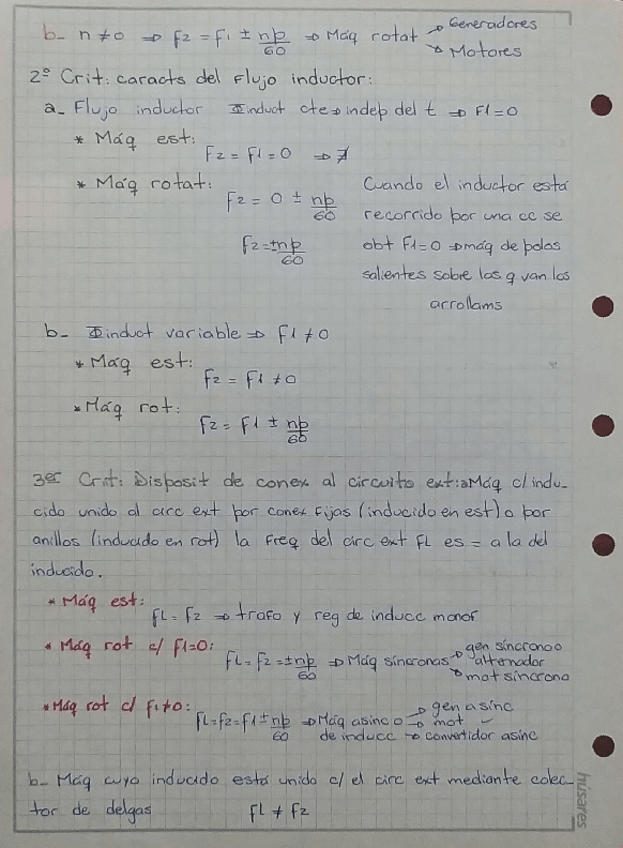 b- n ≠ 0 ⇒ F2 = F1 ± np/60 ⇒ Máq rotat → Generadores
→ Motores
2º Crit: caracts del Flujo inductor:
a- Flujo inductor Φinduct cte ⇒ indep del t ⇒ F1 = 0
* Máq est:
F2 = F1 = 0 ⇒ ∄
* Máq rotat:
F2 = 0 ± np/60
F2 = ± np/60
Cuando el inductor está
recorrido por una cc se
obt F1=0 ⇒ máq de polos
salientes sobre los q van los
arrollams
b- Φinduct variable ⇒ F1 ≠ 0
* Máq est:
F2 = F1 ≠ 0
* Máq rot:
F2 = F1 ± np/60
3er Crit: Disposit de conex al circuito ext: a Máq c/ indu-
cido unido al circ ext por conex fijas (inducido en est) o por
anillos (inducido en rot) la Freq del circ ext FL es = a la del
inducido.
* Máq est:
FL = F2 ⇒ trafo y reg de inducc monof
* Máq rot c/ F1=0:
FL = F2 = ± np/60 ⇒ Máq síncronas → gen síncrono o
alternador
→ mot síncrono
* Máq rot c/ F1≠0:
FL = F2 = F1 ± np/60 ⇒ Máq asinc o → gen asínc
→ mot ✓
de inducc → convertidor asinc
b- Máq cuyo inducido está unido c/ el circ ext mediante colec-
tor de delgas FL ≠ F2
húsares